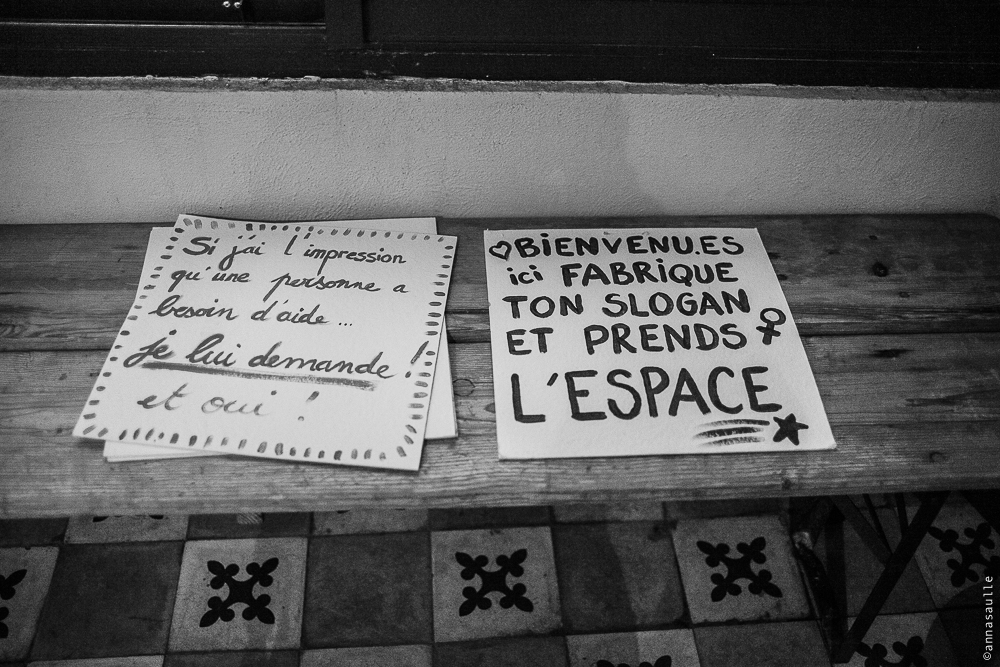 Si j'ai l'impression
qu'une personne a
besoin d'aide...
je lui demande !
et oui !
BIENVENU.ES
ici FABRIQUE
TON SLOGAN
ET PRENDS
L'ESPACE
©annasaulle